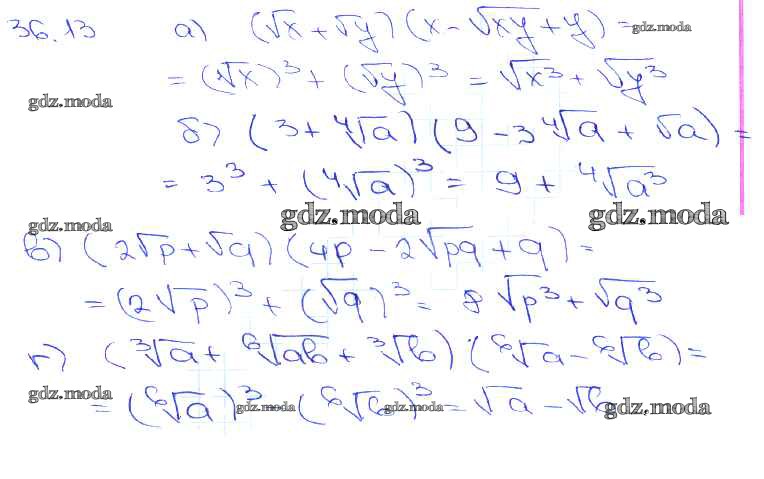 36.13 а) (√x + √y) (x - √xy + y) = gdz.moda
= (√x)³ + (√y)³ = √x³ + √y³
gdz.moda
б) (3 + ⁴√a) (9 - 3⁴√a + √a) =
= 3³ + (⁴√a)³ = 9 + ⁴√a³
gdz.moda gdz.moda gdz.moda
в) (2√p + √q) (4p - 2√pq + q) =
= (2√p)³ + (√q)³ = 8√p³ + √q³
г) (³√a + ⁶√ab + ³√b) · (⁶√a - ⁶√b) =
gdz.moda = (⁶√a)³ gdz.moda (⁶√b)³ gdz.moda = √a - √b gdz.moda